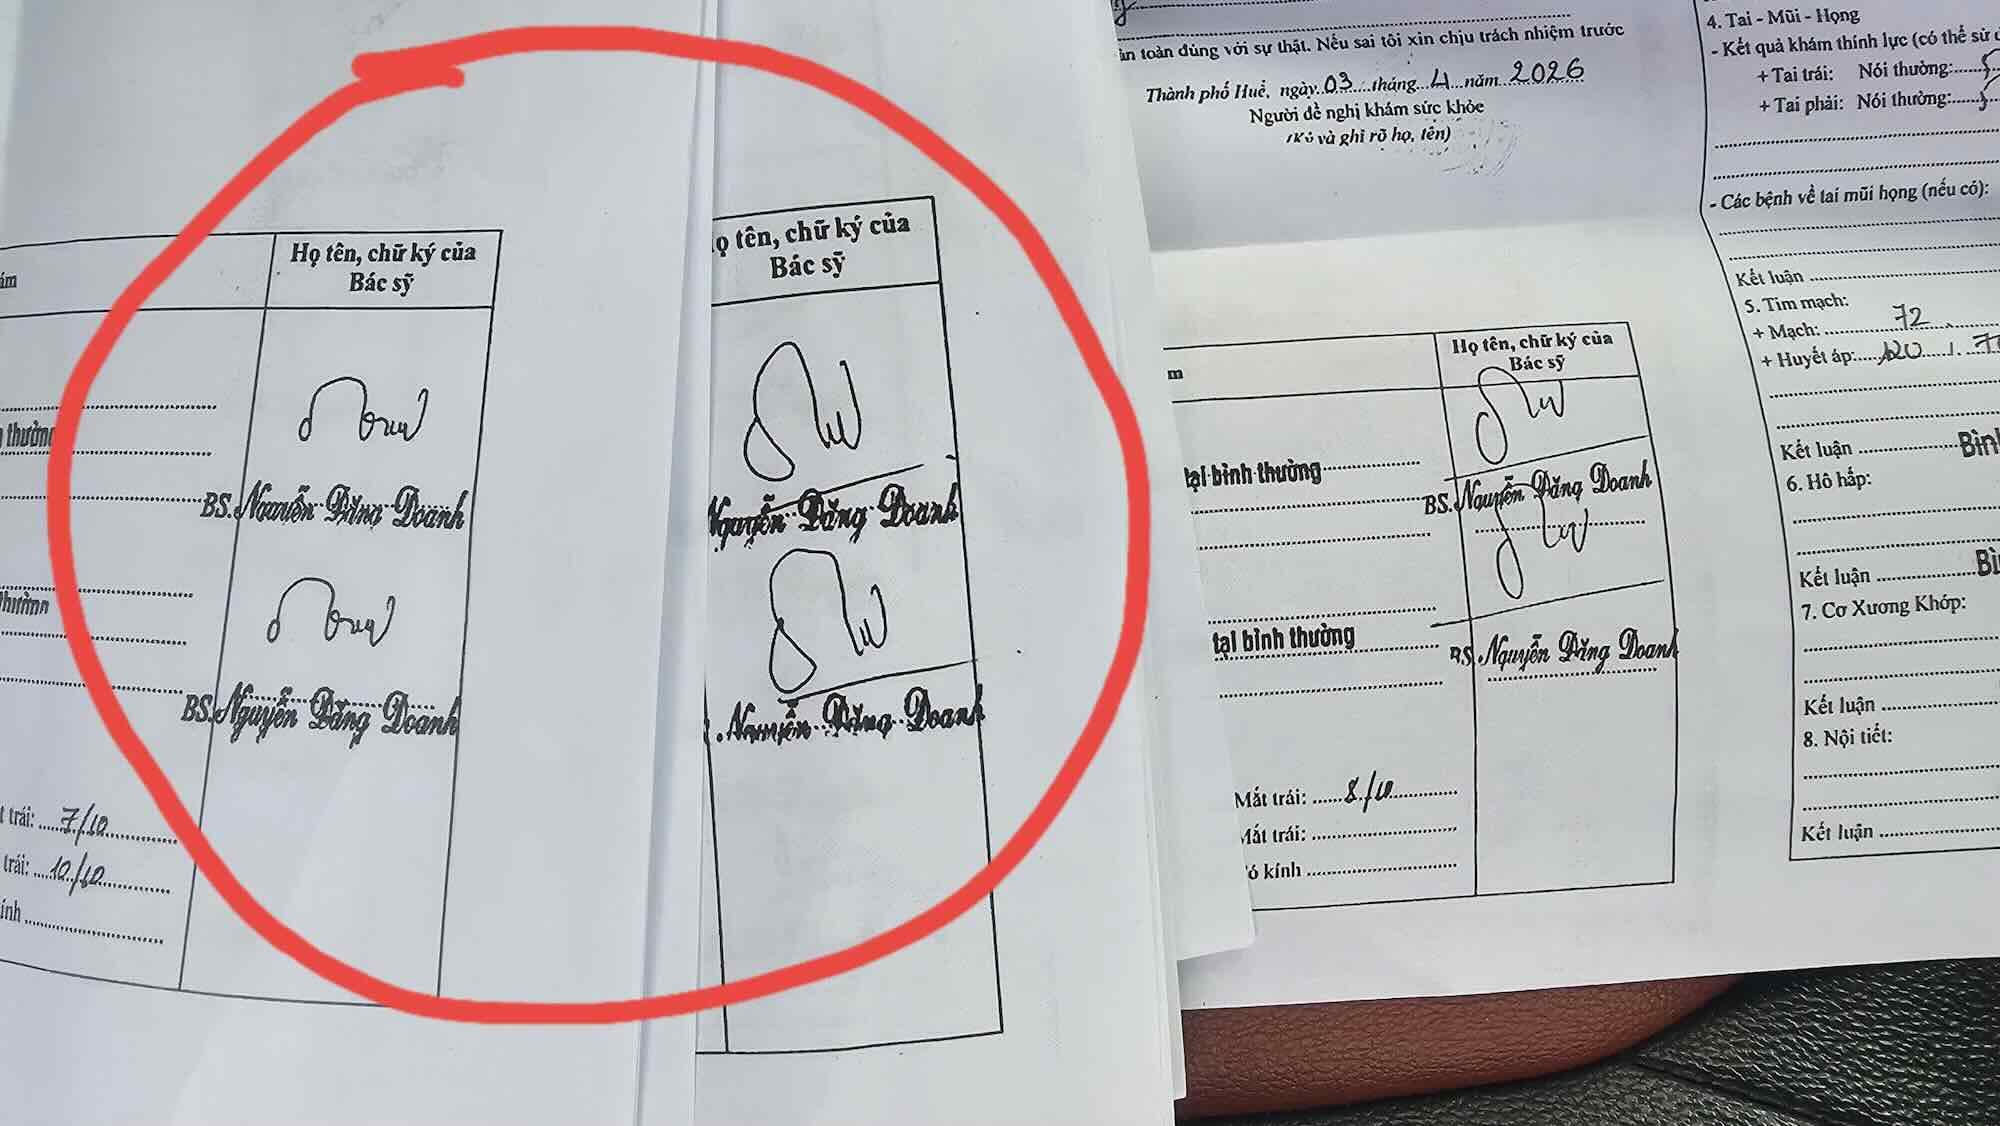 Họ tên, chữ ký của
Bác sỹ
thường
BS. Nguyễn Đăng Doanh
thường
BS. Nguyễn Đăng Doanh
trái: 7/10
trái: 10/10
ính
ọ tên, chữ ký của
Bác sỹ
Nguyễn Đăng Doanh
. Nguyễn Đăng Doanh
àn toàn đúng với sự thật. Nếu sai tôi xin chịu trách nhiệm trước
Thành phố Huế, ngày 03 tháng 4 năm 2026
Người đề nghị khám sức khỏe
(Ký và ghi rõ họ, tên)
m
Họ tên, chữ ký của
Bác sỹ
tại bình thường
BS. Nguyễn Đăng Doanh
tại bình thường
BS. Nguyễn Đăng Doanh
Mắt trái: 8/10
Mắt trái:
ó kính
4. Tai - Mũi - Họng
- Kết quả khám thính lực (có thể sử
+ Tai trái: Nói thường:
+ Tai phải: Nói thường:
- Các bệnh về tai mũi họng (nếu có):
Kết luận
5. Tim mạch:
+ Mạch: 72
+ Huyết áp: 120 /
Kết luận Bìn
6. Hô hấp:
Kết luận Bì
7. Cơ Xương Khớp:
Kết luận
8. Nội tiết:
Kết luận